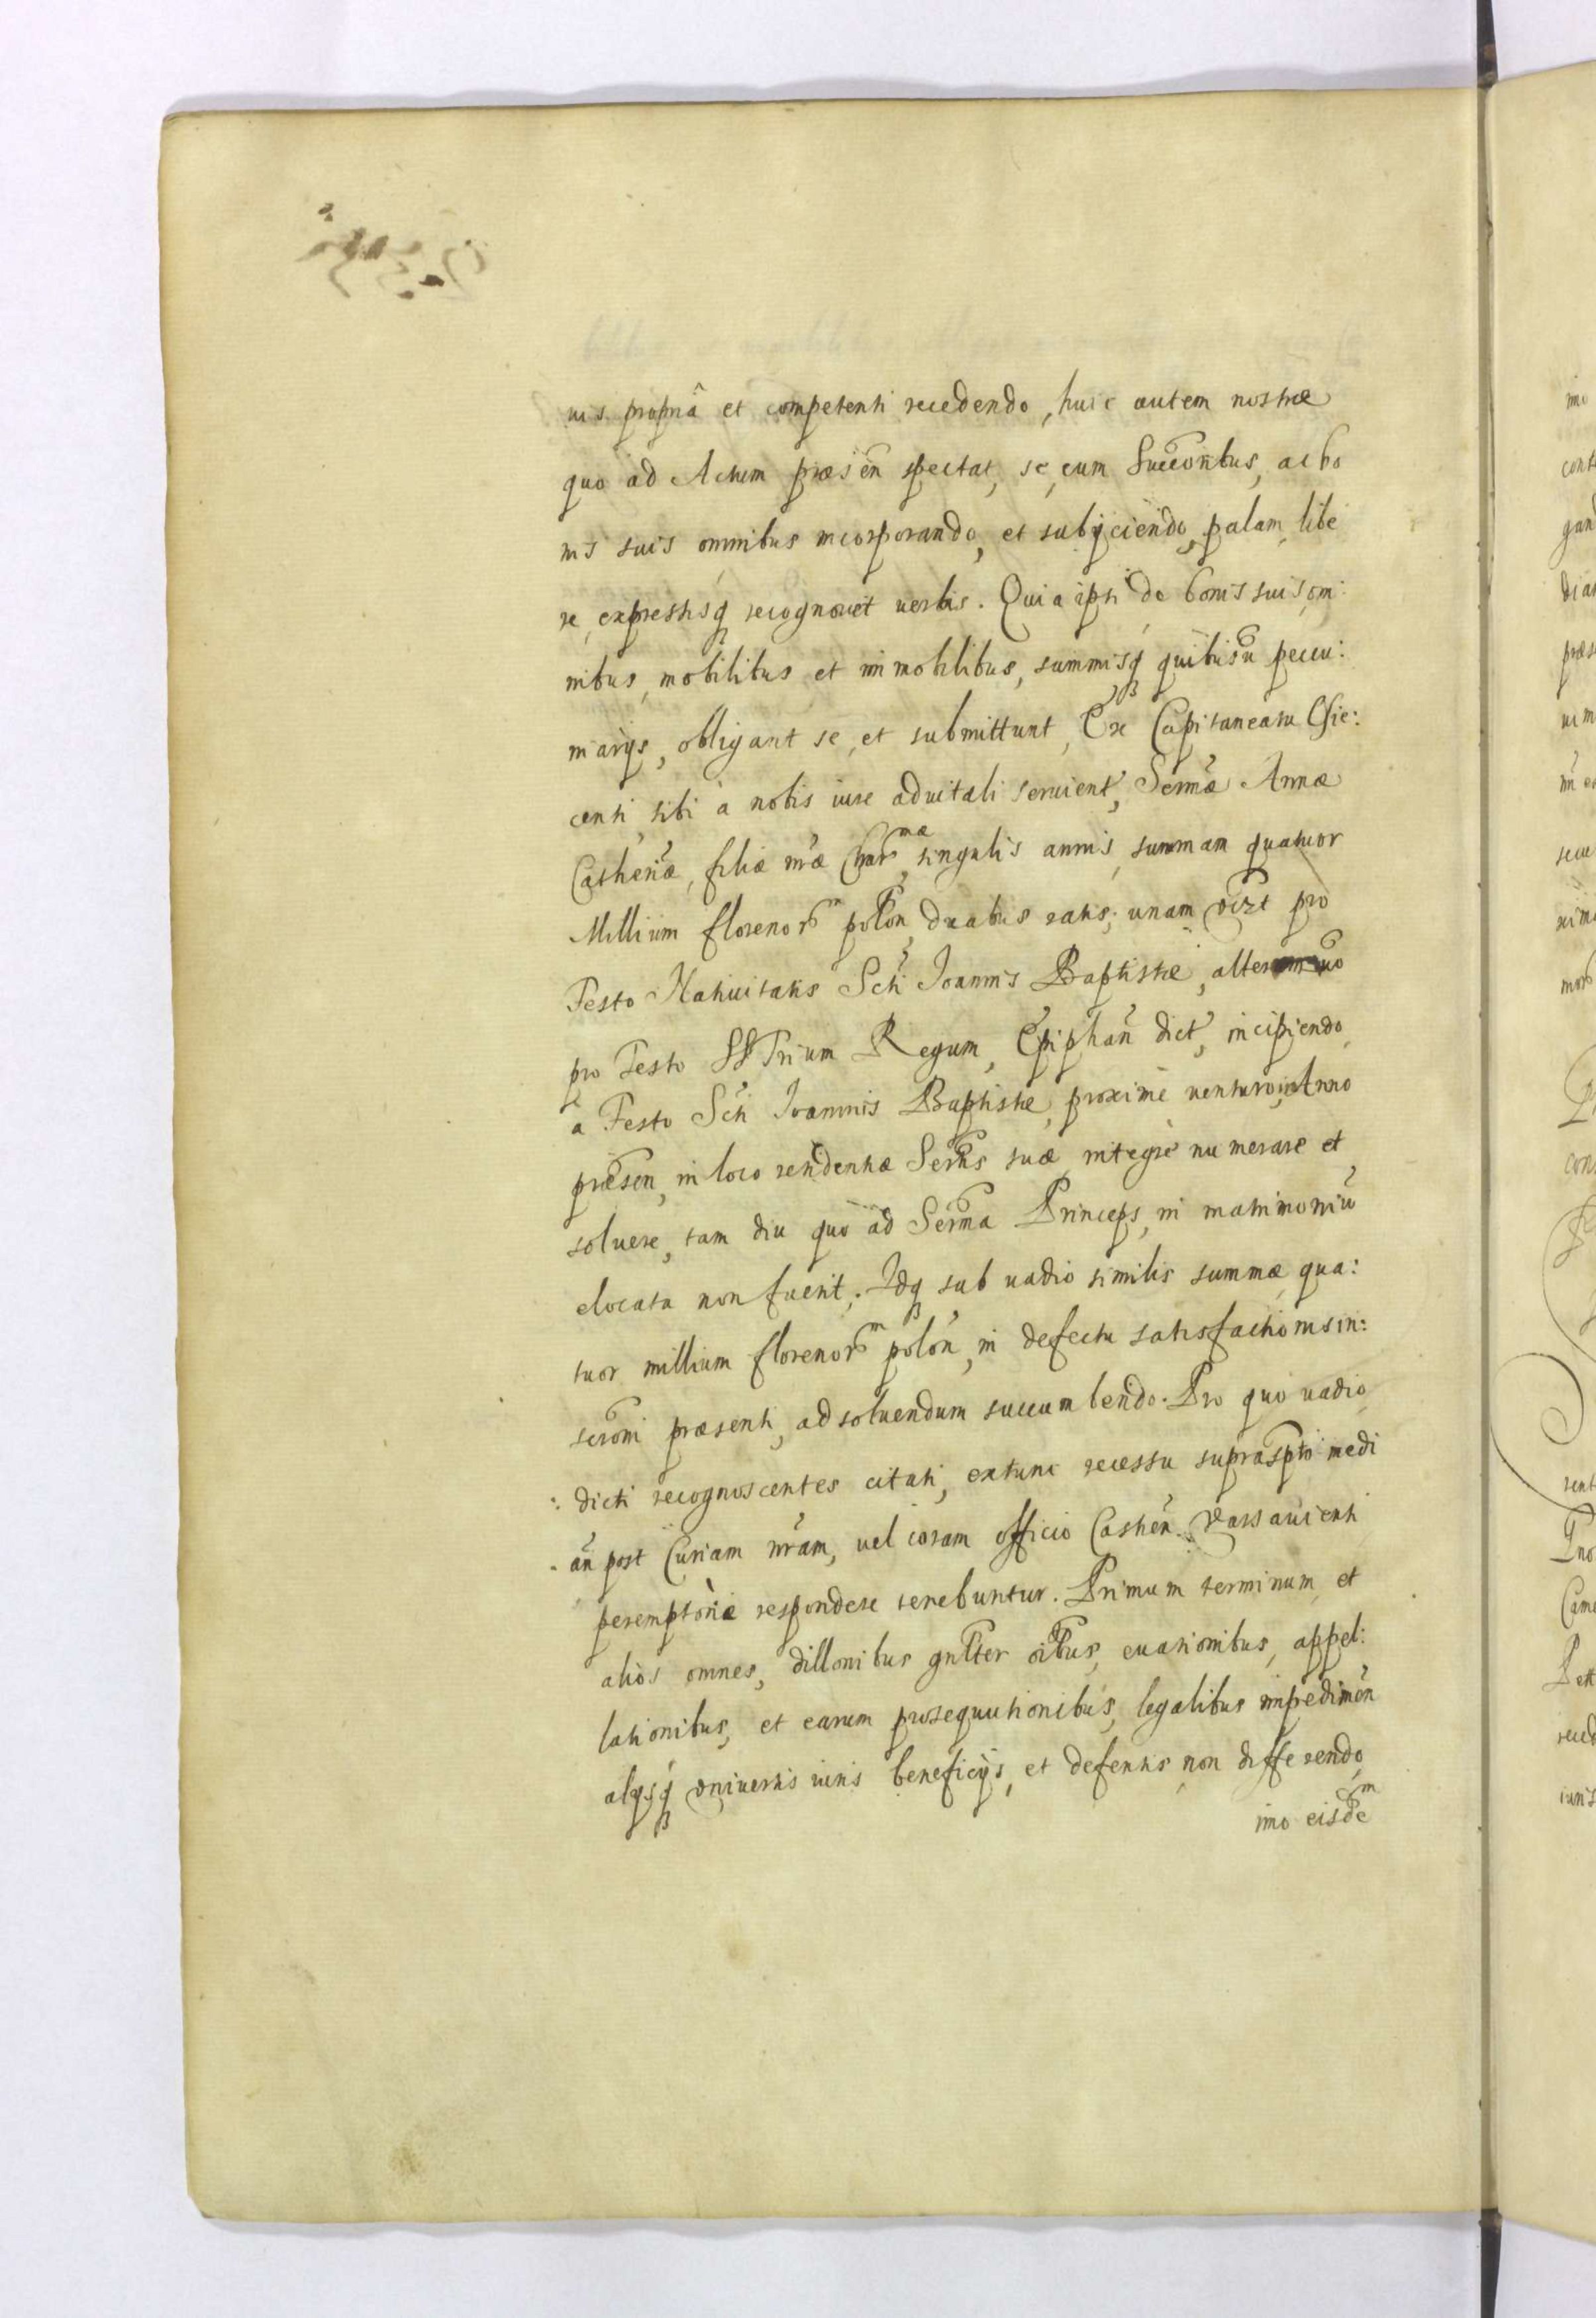 uis propriâ et competenti recedendo, huic autem nostræ
quo ad Actum præsen̄ spectat, se, cum Succoribus, ac bo
nis suis omnibus incorporando, et subijciendo, palam, libe
re, expressisq́ recognovit verbis. Quia ipsi de bonis suis, om:
nibus, mobilibus et immobilibus, summisq́ quibusu pecu:
niarijs, obligant se, et submittunt, Ex Capitaneatu Osie:
centi, sibi à nobis iure aduitali seruient, Sermæ Annæ
Catherinæ, filiæ nr̄æ Char mæ singulis annis, summam quatuor
Millium florenor m polon̄, duabus ratis; unam vizt pro
Festo Natiuitatis Scti Joannis Baptistæ, alteram uo
pro Festo SS Trium Regum, Epiphan̄ dict, incipiendo
à Festo Scti Joannis Baptistæ, proximè venturo, in Anno
præsen, in loco residentiæ Sertis suæ, integrè numerare et
soluere, tam diu quo ad Serma Princeps, in matrimoniū
elocata non fuerit; Idq sub vadio similis summæ qua:
tuor millium florenor m polon̄, in defectu satisfactionis in:
scroni præsenti, ad soluendum succumbendo. Pro quo vadio
: dicti recognoscentes citati, extunc recessu suprascpto medi
. an̄ post Curiam nr̄am, vel coram officio Casthen̄. Varsauienti
peremptoriæ respondere tenebuntur. Primum terminum, et
alios omnes, dillonibus gnlter oibus, euationibus, appel:
lationibus, et earum prosequutionibus, legalibus impedimen̄
alijsq́ vniuersis iuris beneficijs, et defensis, non differendo,
imo eisde m